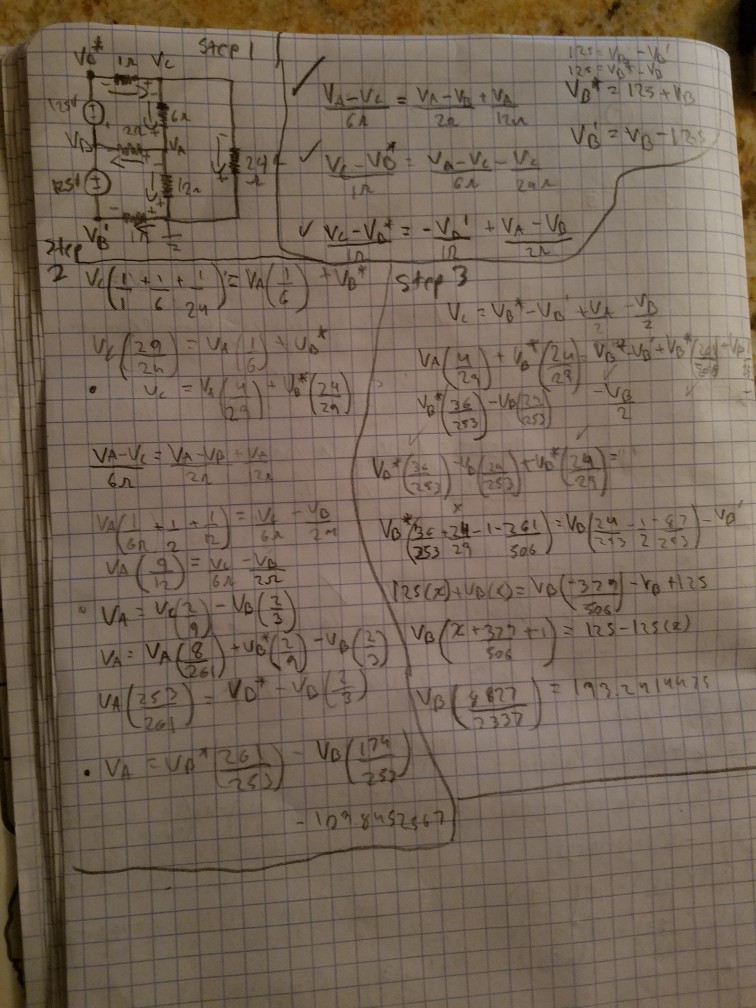 Step 1
VB* 1Ω VC
125V
6Ω
2Ω
VB VA
24Ω
125V
12Ω
VB' 1Ω
(VA-VC)/6Ω = (VA-VB)/2Ω + VA/12Ω
(VC-VB*)/1Ω = (VA-VC)/6Ω - VC/24Ω
(VC-VB*)/1Ω = -VB'/1Ω + (VA-VB)/2Ω
125 = VB - VB'
125 = VB* - VB
VB* = 125 + VB
VB' = VB - 125
Step 2
VC(1/1 + 1/6 + 1/24) = VA(1/6) + VB*
VC(29/24) = VA(1/6) + VB*
• VC = VA(4/29) + VB*(24/29)
(VA-VC)/6Ω = (VA-VB)/2Ω + VA/12Ω
VA(1/6Ω + 1/2 + 1/12) = VC/6Ω - VB/2Ω
VA(9/12) = VC/6Ω - VB/2Ω
• VA = VC(2/9) - VB(2/3)
VA = VA(8/261) + VB*(2/9) - VB(2/3)
VA(253/261) = VB* - VB(2/3)
• VA = VB*(261/253) - VB(174/253)
-109.8452567
Step 3
VC = VB* - VB' + VA/2 - VB/2
VA(4/29) + VB*(24/29) = VB* - VB' + VB*
- VB/2
VB*(36/253) - VB(24/253)
VB*(36/253) - VB(24/253) + VB*(24/29) =
x
VB*(36/253 + 24/29 - 1 - 261/506) = VB(24/253 - 1/2 - 87/253) - VB'
125(x) + VB(x) = VB(-379/506) - VB + 125
VB(x + 379/506 + 1) = 125 - 125(x)